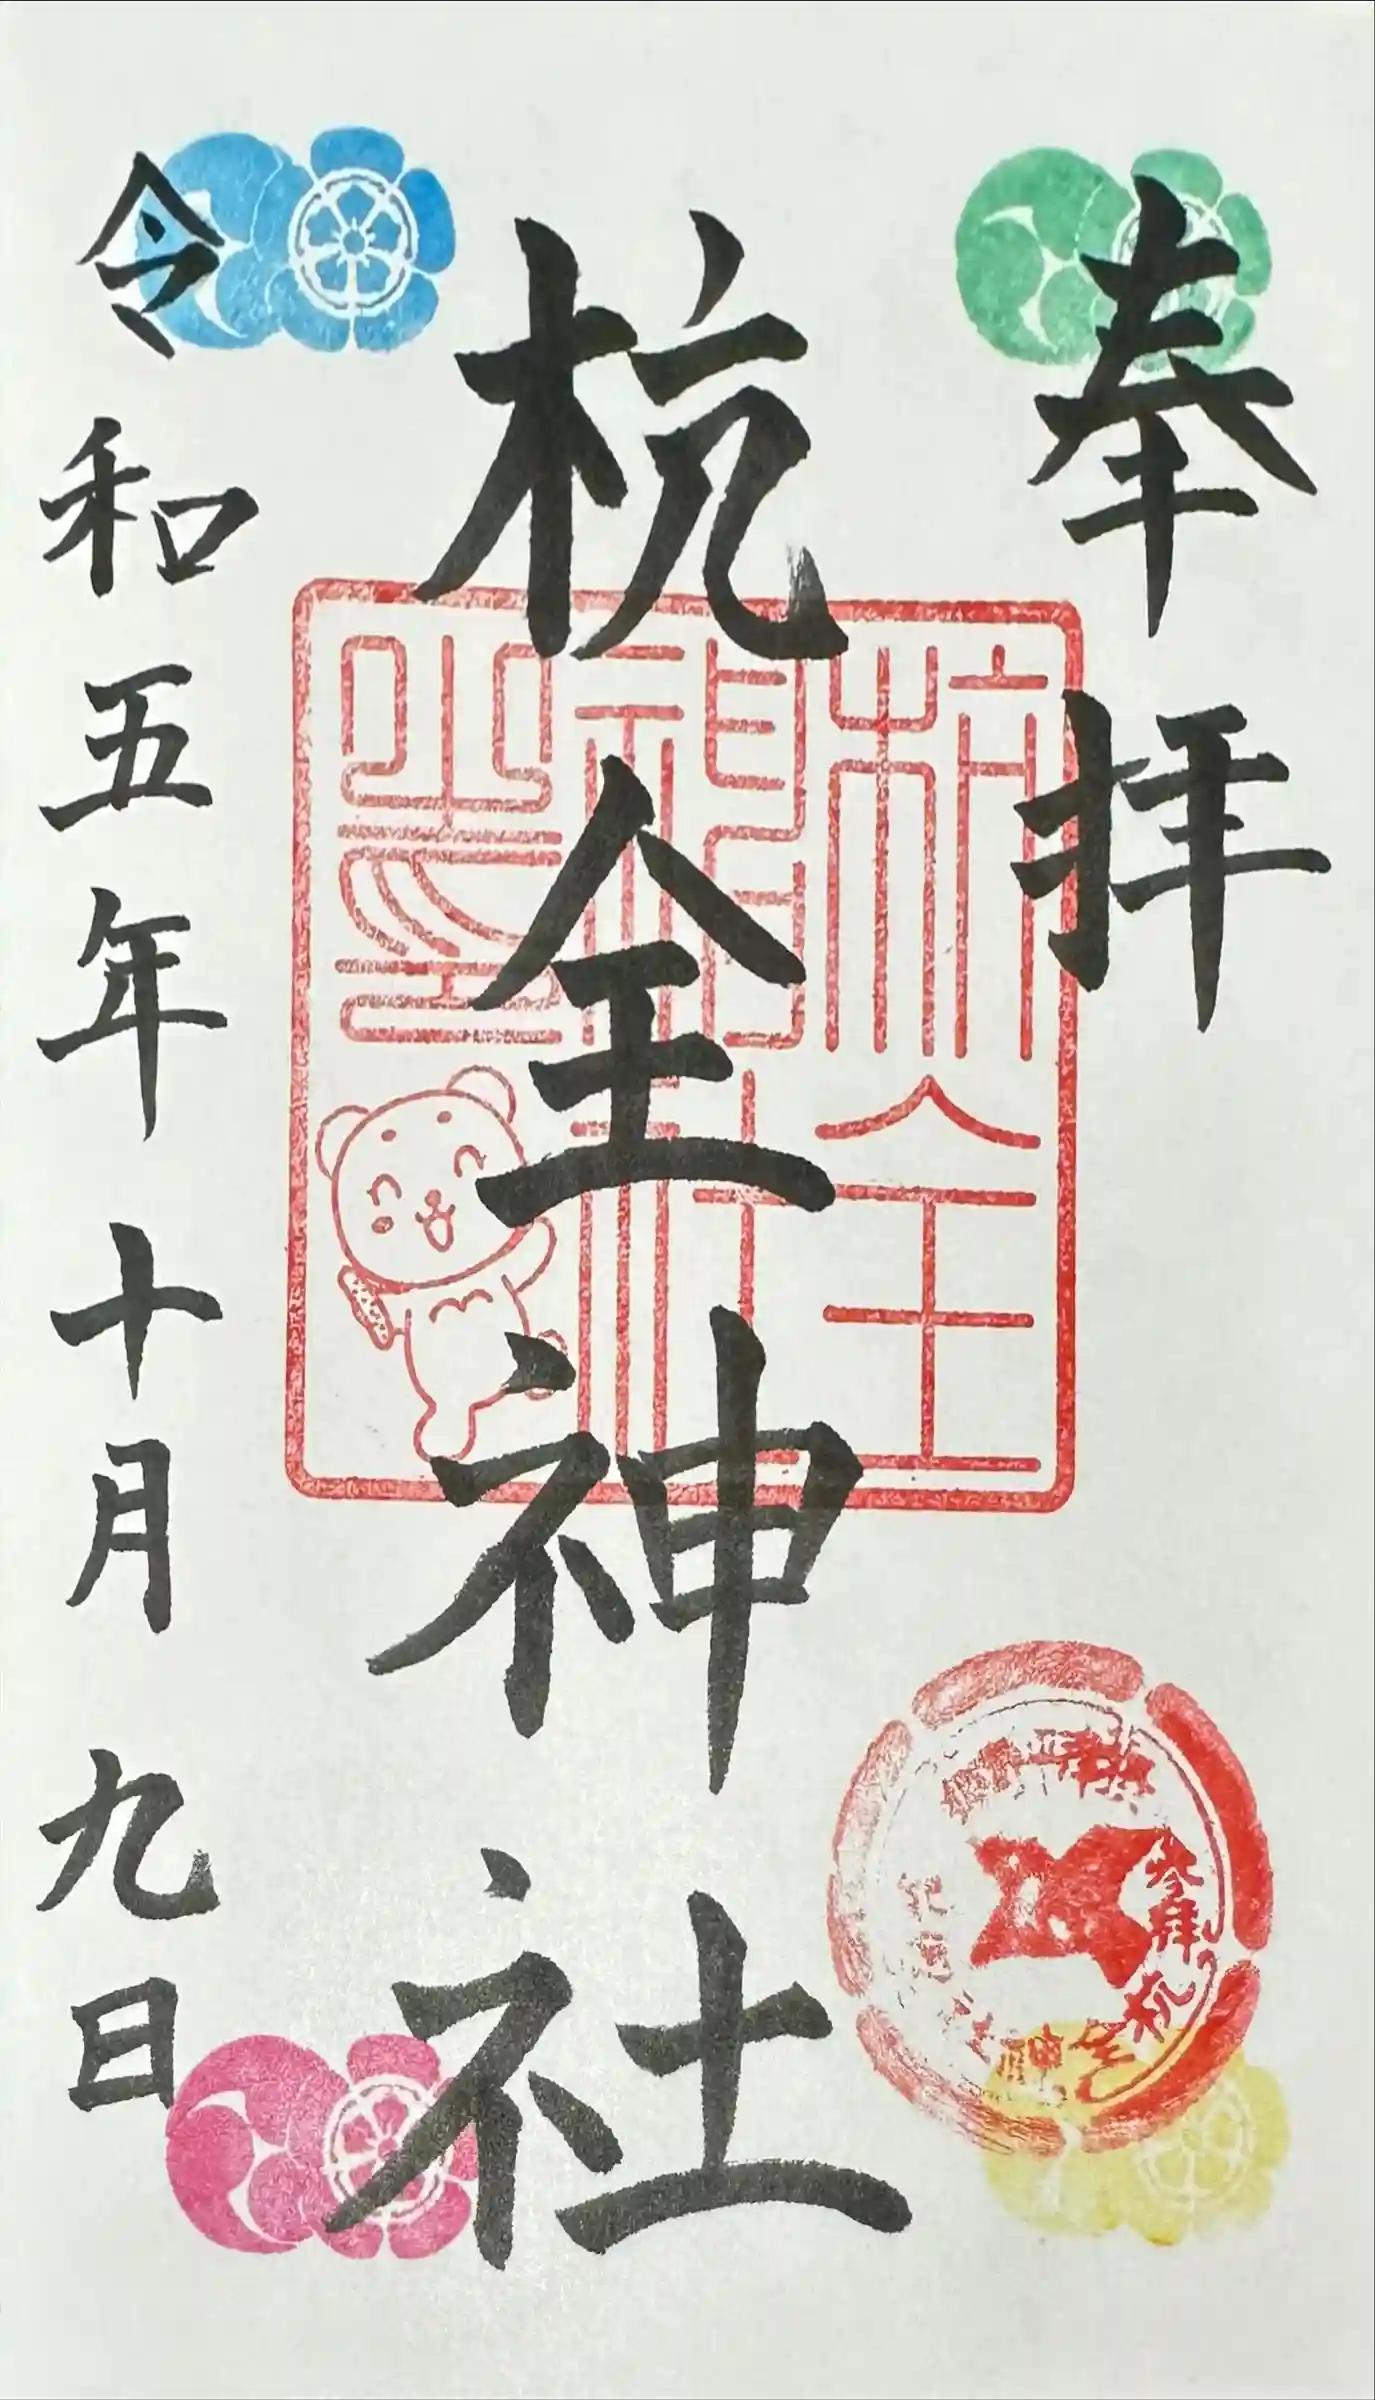 奉拝
杭全神社
令和五年十月九日
杭全
神社
参拝
杭全神社